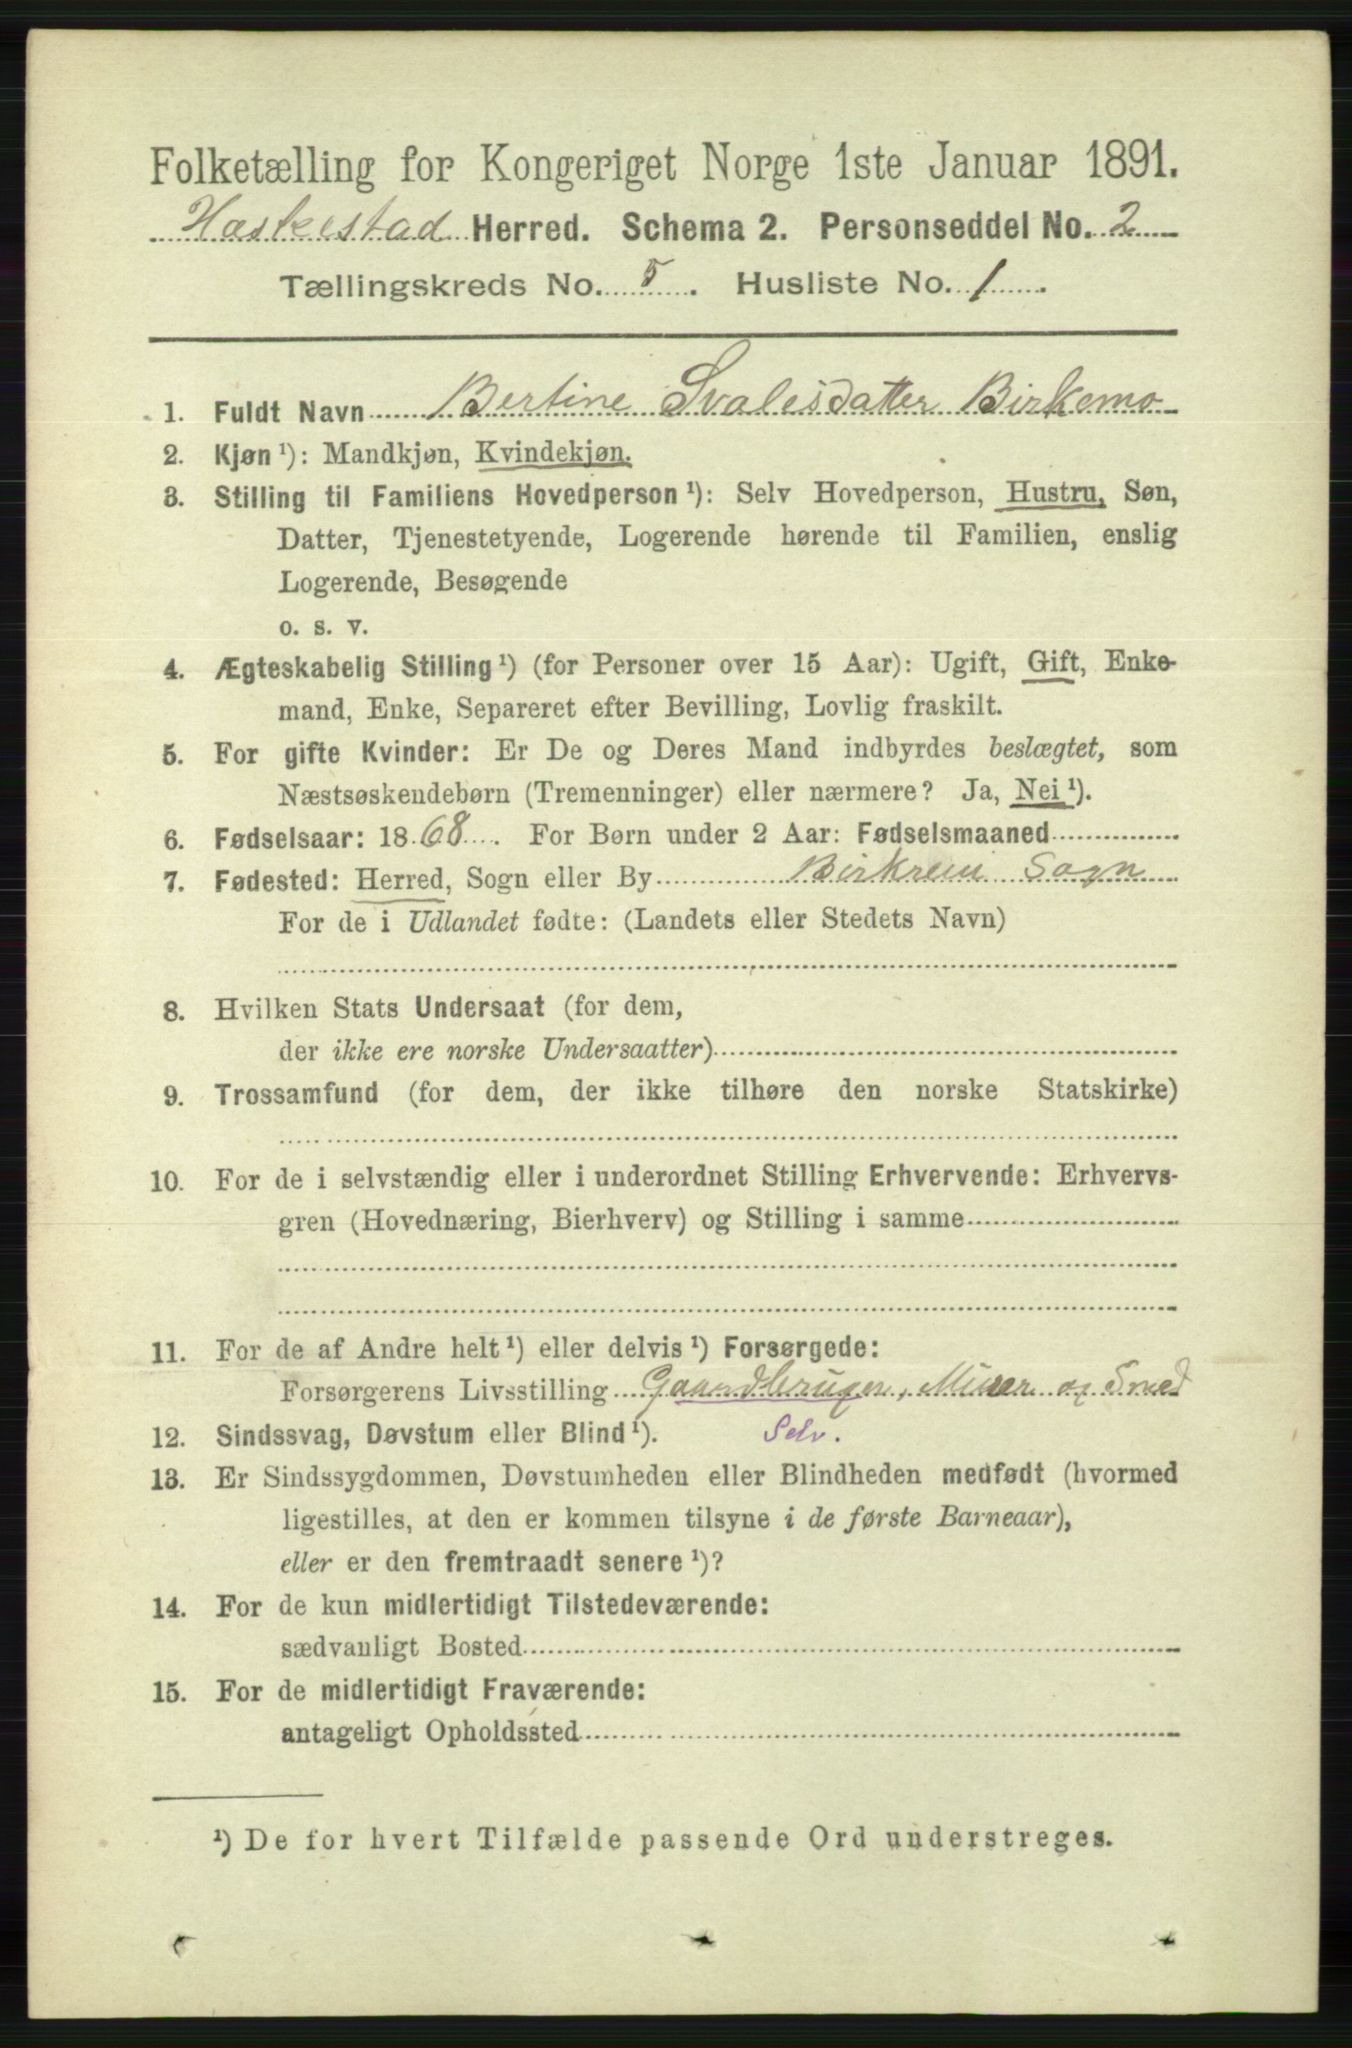 Folketælling for Kongeriget Norge 1ste Januar 1891.
Heskestad Herred. Schema 2. Personseddel No. 2
Tællingskreds No. 5. Husliste No. 1.
1. Fuldt Navn Bertine Svalesdatter Birkemo
2. Kjøn ¹): Mandkjøn, Kvindekjøn.
3. Stilling til Familiens Hovedperson ¹): Selv Hovedperson, Hustru, Søn,
Datter, Tjenestetyende, Logerende hørende til Familien, enslig
Logerende, Besøgende
o. s. v.
4. Ægteskabelig Stilling ¹) (for Personer over 15 Aar): Ugift, Gift, Enke-
mand, Enke, Separeret efter Bevilling, Lovlig fraskilt.
5. For gifte Kvinder: Er De og Deres Mand indbyrdes beslægtet, som
Næstsøskendebørn (Tremenninger) eller nærmere? Ja, Nei ¹).
6. Fødselsaar: 1868. For Børn under 2 Aar: Fødselsmaaned
7. Fødested: Herred, Sogn eller By Birkrem Sogn
For de i Udlandet fødte: (Landets eller Stedets Navn)
8. Hvilken Stats Undersaat (for dem,
der ikke ere norske Undersaatter)
9. Trossamfund (for dem, der ikke tilhøre den norske Statskirke)
10. For de i selvstændig eller i underordnet Stilling Erhvervende: Erhvervs-
gren (Hovednæring, Bierhverv) og Stilling i samme
11. For de af Andre helt ¹) eller delvis ¹) Forsørgede:
Forsørgerens Livsstilling Gaardbruger, Murer og Smed
12. Sindssvag, Døvstum eller Blind ¹). Selv.
13. Er Sindssygdommen, Døvstumheden eller Blindheden medfødt (hvormed
ligestilles, at den er kommen tilsyne i de første Barneaar),
eller er den fremtraadt senere ¹)?
14. For de kun midlertidigt Tilstedeværende:
sædvanligt Bosted
15. For de midlertidigt Fraværende:
antageligt Opholdssted
¹) De for hvert Tilfælde passende Ord understreges.